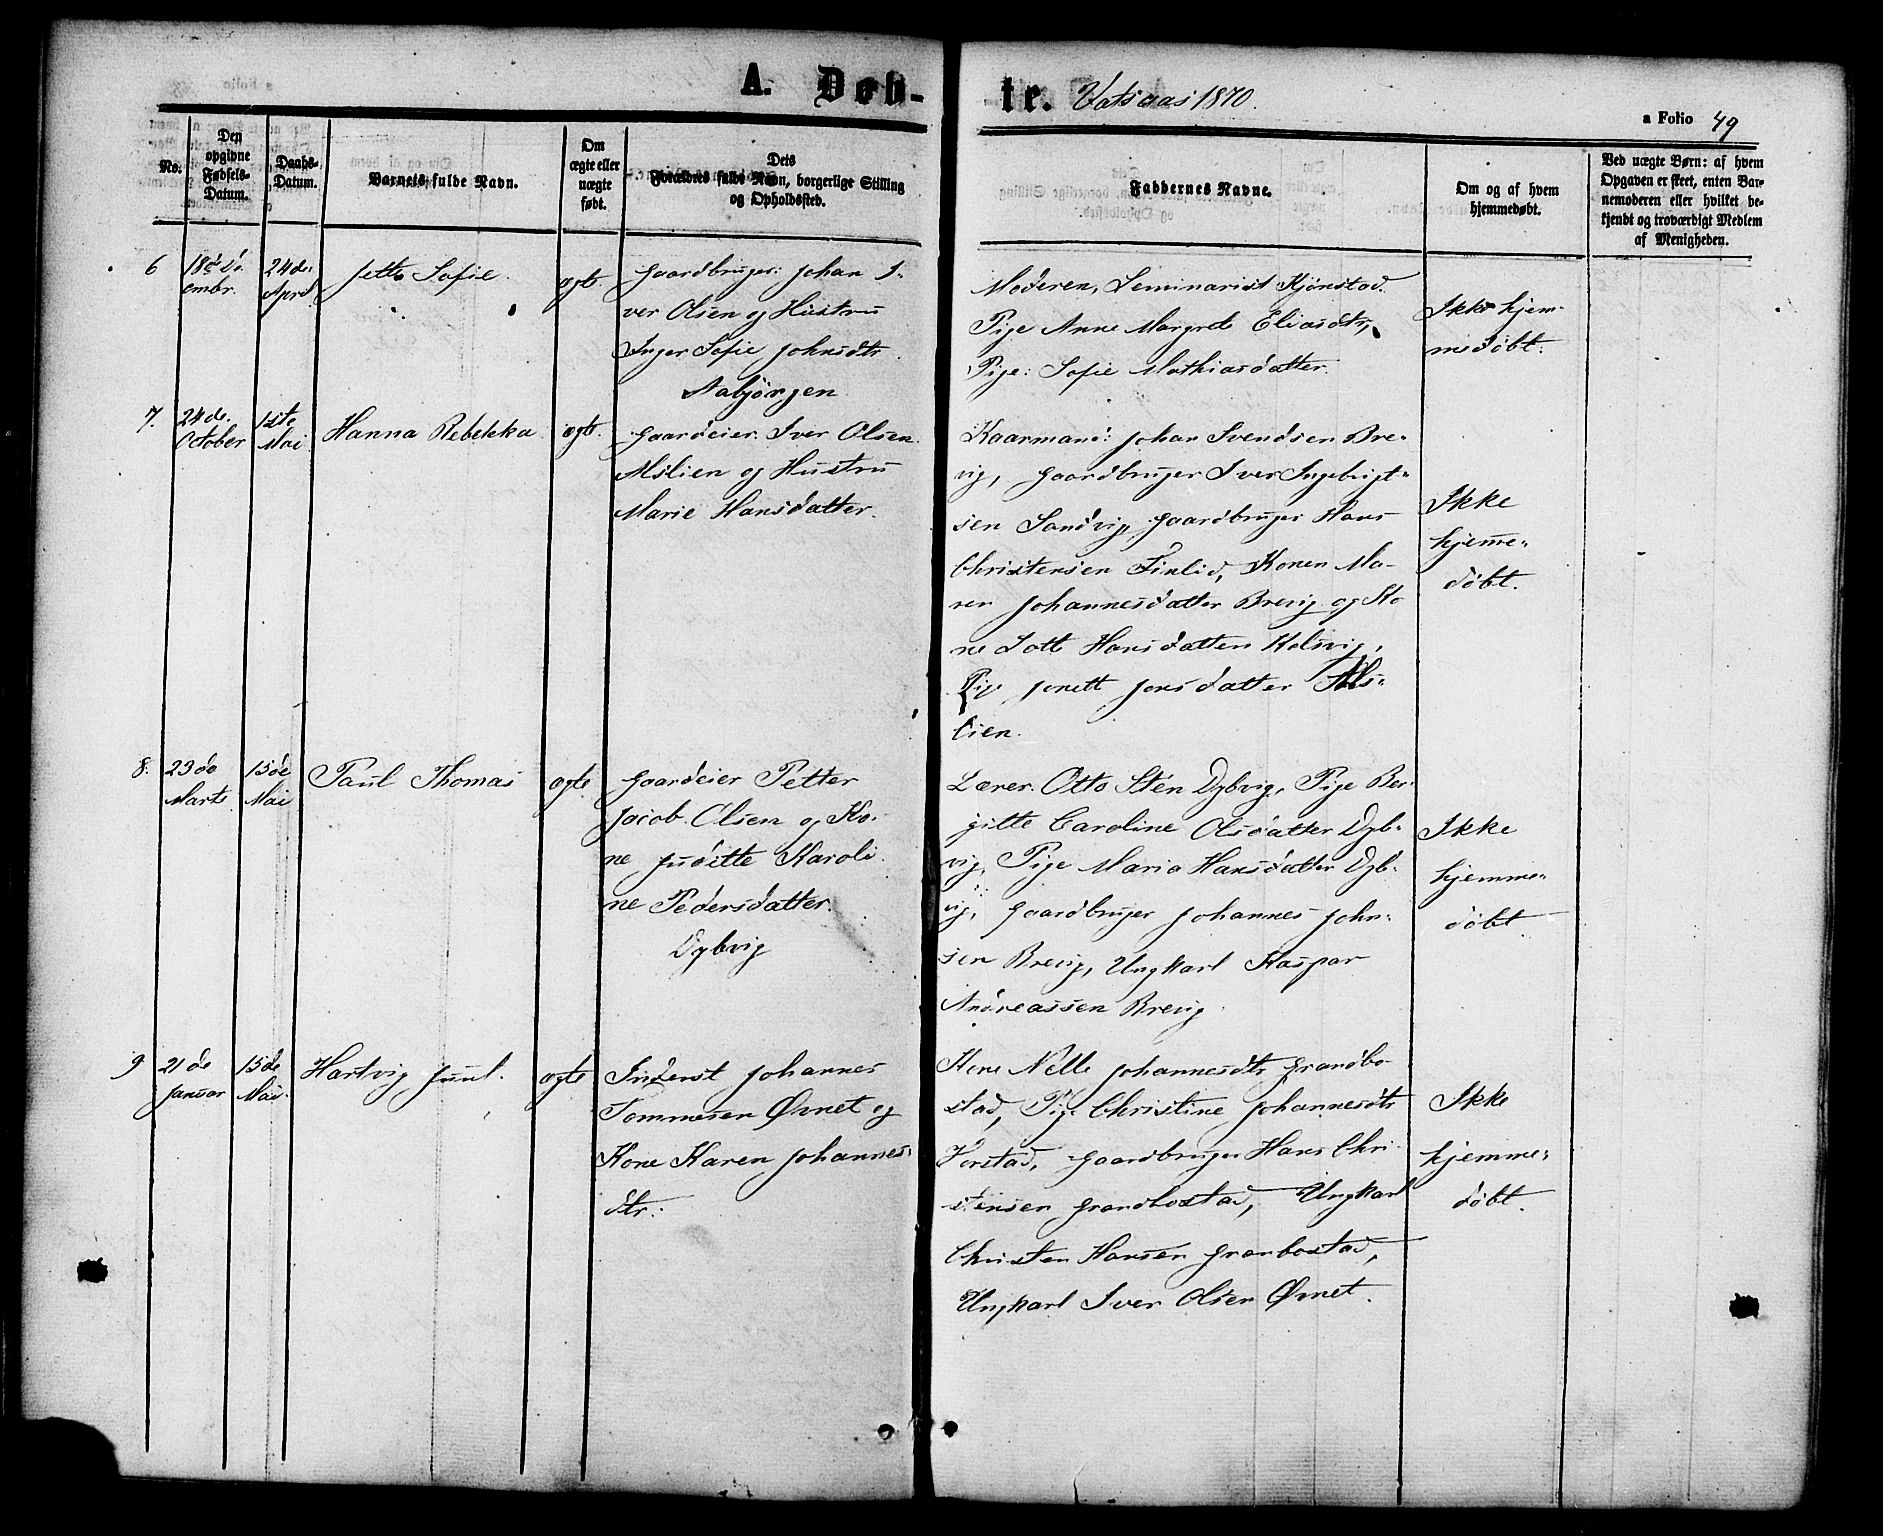 A. Døb-
te. Vatsaas 1870.
a Folio 49
No.
Den
opgivne
Fødsels-
Datum.
Daabs-
Datum.
Barnets fulde Navn.
Om
ægte eller
uægte
født.
Dets
Forældres fulde Navn, borgerlige Stilling
og Opholdssted.
Faddernes Navne.
Om og af hvem
hjemmedøbt.
Ved uægte Børn: af hvem
Opgaven er skeet, enten Bar-
nemoderen eller hvilket be-
kjendt og troværdigt Medlem
af Menigheden.
6
18de De
embr.
24de
April
Jette Sofie.
ægt.
Gaardbruger: Johan I-
ver Olsen og Hustru
Inger Sofie Johnsdtr.
Aabjørgen
Moderen, Seminarist Kjønstad.
Pige Anne Margrete Eliasdtr,
Pige: Sofie Mathiasdatter.
Ikke hjem-
medøbt.
7.
24de.
October
1ste
Mai
Hanna Rebekka.
ægt.
Gaardeier Iver Olsen
Alslien og Hustru
Marie Hansdatter.
Kaarmand: Johan Svendsen Bre-
vig, Gaardbruger Iver Ingebrigt-
sen Sandvig, Gaardbruger Hans
Christensen Finlid, Konen Ma-
ren Johannesdatter Brevig og Ko
ne Lotte Hansdatter Kolsvig,
Pige Jonett Jonsdatter Als-
lien.
Ikke
hjemme-
døbt.
8.
23de
Marts
15de
Mai
Paul Thomas
ægte
Gaardeier Petter
Jacob Olsen og Ko-
ne Juditte Karoli-
ne Pedersdatter.
Dybvig
Lærer. Otto Sten Dybvig, Pige Ber-
gitte Caroline Olsdatter Dyb-
vig, Pige Maria Hansdatter Dyb-
vig, Gaardbruger Johannes John-
sen Brevig, Ungkarl Kaspar
Andreassen Brevig.
Ikke
hjemme-
døbt.
9
21de
Januar
15de
Mai.
Hartvig Juul.
ægte
Inderst Johannes
Tommesen Øvnet og
Kone Karen Johannes-
dtr.
Kone Nille Johannesdtr Grandbo-
stad, Pige Christine Johannesdtr
Vorstad, Gaardbruger Hans Chri-
stensen Grandbostad, Ungkarl
Christen Hansen Granbostad,
Ungkarl Iver Olsen Øvnet.
Ikke
hjemme-
døbt.